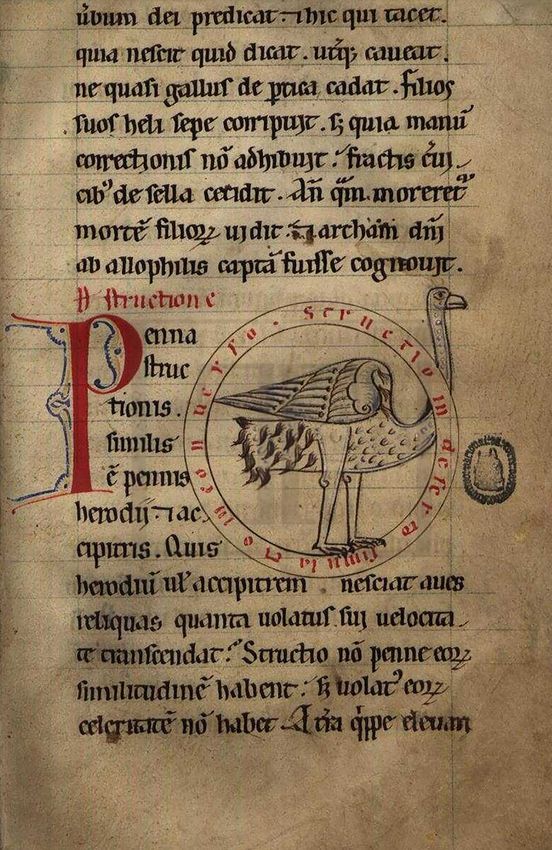 ũbum dei predicat. ⁊ hic qui tacet.
quia nescit quid dicat. utq; caueat.
ne quasi gallus de ꝑtica cadat. Filios
suos heli sepe corripuit. sꝫ quia manũ
correctionis nõ adhibuit. fractis c̃ui
cibꝰ de sella cecidit. An̄ qͣm moreretͬ
mortẽ filioꝝ uidit. ⁊ archam dñi
ab allophilis captã fuisse cognouit.
structione
Penna
struc
tionis.
similis
ẽ pennis
herodij ⁊ ac
cipitris. Quis
herodiũ uł accipitrem nesciat aues
reliquas quanta uolatus sui uelocita
te transcendat. Structio nõ penne eoꝝ
similitudinẽ habent. sꝫ uolatꝰ eoꝝ
celeritatẽ nõ habet. A t̃ra qͥppe eleuari
structio in deserto conuerso